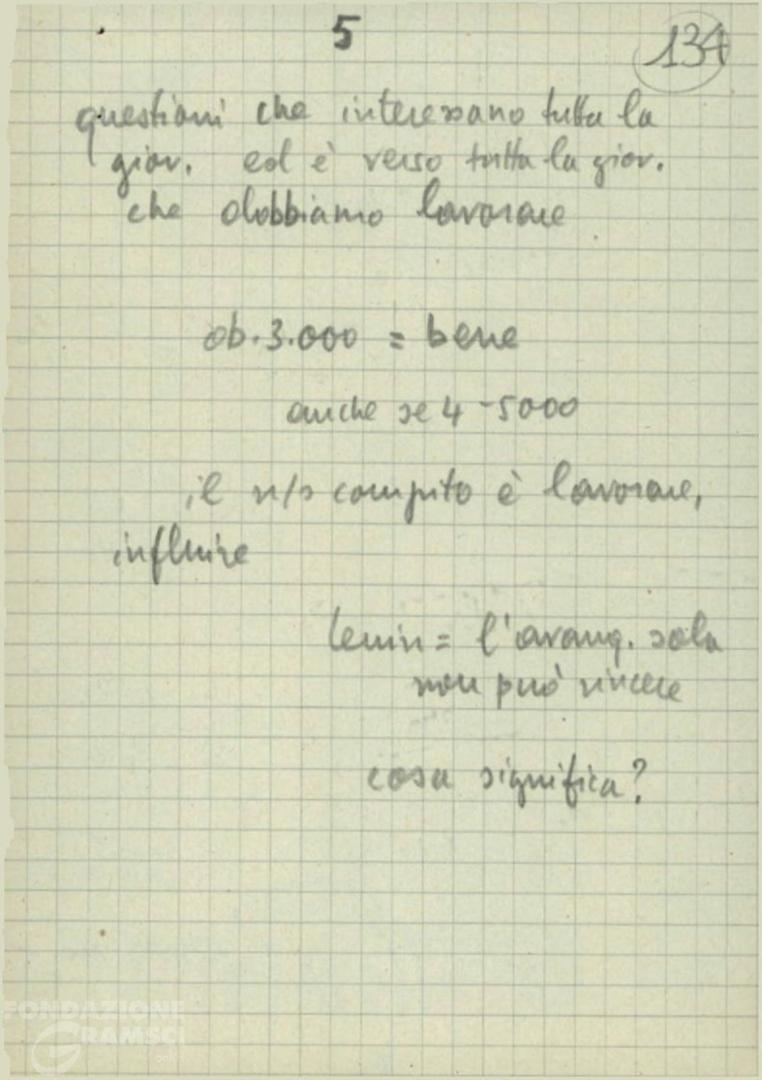 5
134
questioni che interessano tutta la
giov. ed è verso tutta la giov.
che dobbiamo lavorare
ob. 3.000 = bene
anche se 4-5000
il n/s compito è lavorare,
influire
Lenin = l'avang. sola
non può vincere
cosa significa?
FONDAZIONE
GRAMSCI